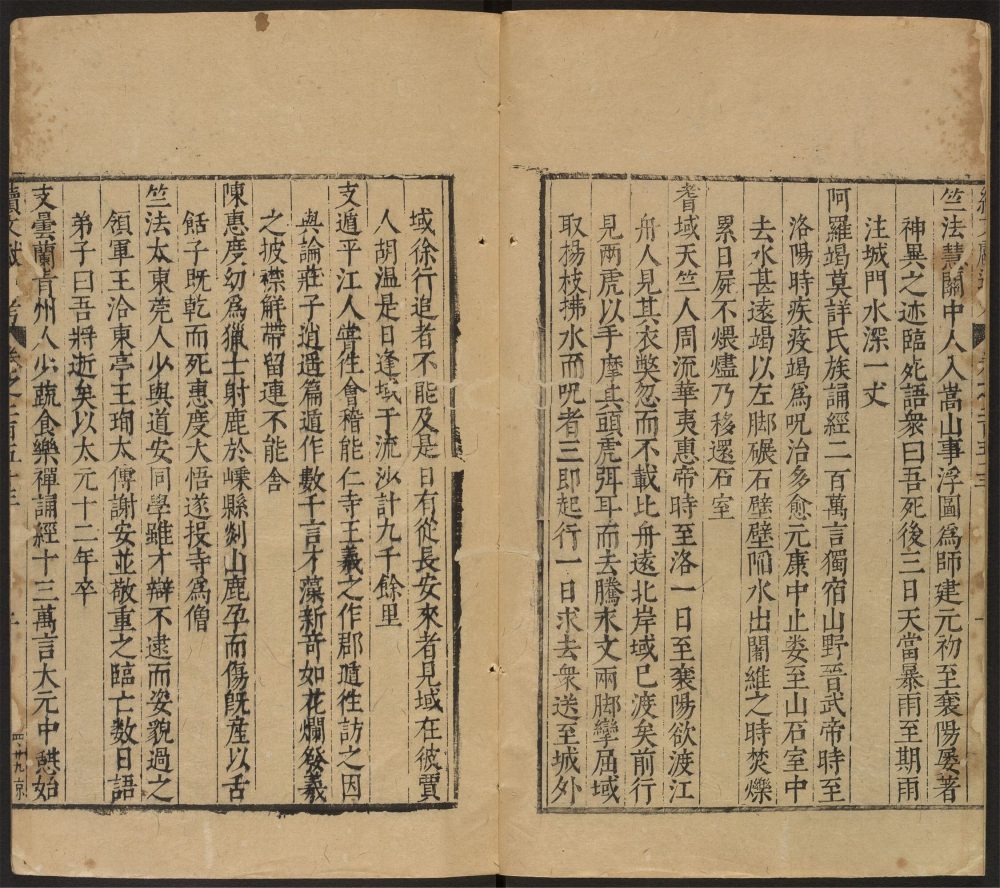 竺法慧關中人入嵩山事浮圖爲師建元初至襄陽屢著
神異之迹臨死語衆曰吾死後三日天當暴雨至期雨
注城門水深一丈
阿羅竭莫詳氏族誦經二百萬言獨宿山野晉武帝時至
洛陽時疾疫竭爲呪治多愈元康中止婁至山石室中
去水甚遠竭以左脚碾石壁壁陷水出闍維之時焚爍
累日屍不煨燼乃移還石室
耆域天竺人周流華夷惠帝時至洛一日至襄陽欲渡江
舟人見其衣獘忽而不載比舟逺北岸域已渡矣前行
見兩虎以手摩其頭虎弭耳而去騰永文兩脚攣屈域
取楊枝拂水而呪者三即起行一日求去衆送至城外
域徐行追者不能及是日有從長安來者見域在彼賈
人胡温是日逢域于流沙計九千餘里
支遁平江人嘗徃會稽能仁寺王羲之作郡遁徃訪之因
與論莊子逍遥篇遁作數千言才藻新竒如花爛發羲
之披襟解帶留連不能舍
陳惠度幼爲獵士射鹿於嵊縣剡山鹿孕而傷旣産以舌
餂子旣乾而死惠度大悟遂投寺爲僧
竺法太東莞人少與道安同學雖才辯不逮而姿貌過之
領軍王洽東亭王珣太傅謝安並敬重之臨亡数日語
弟子曰吾將逝矣以太元十二年卒
支曇蘭青州人少蔬食樂禪誦經十三萬言大元中憇始
續文獻 考 卷之二百五十三